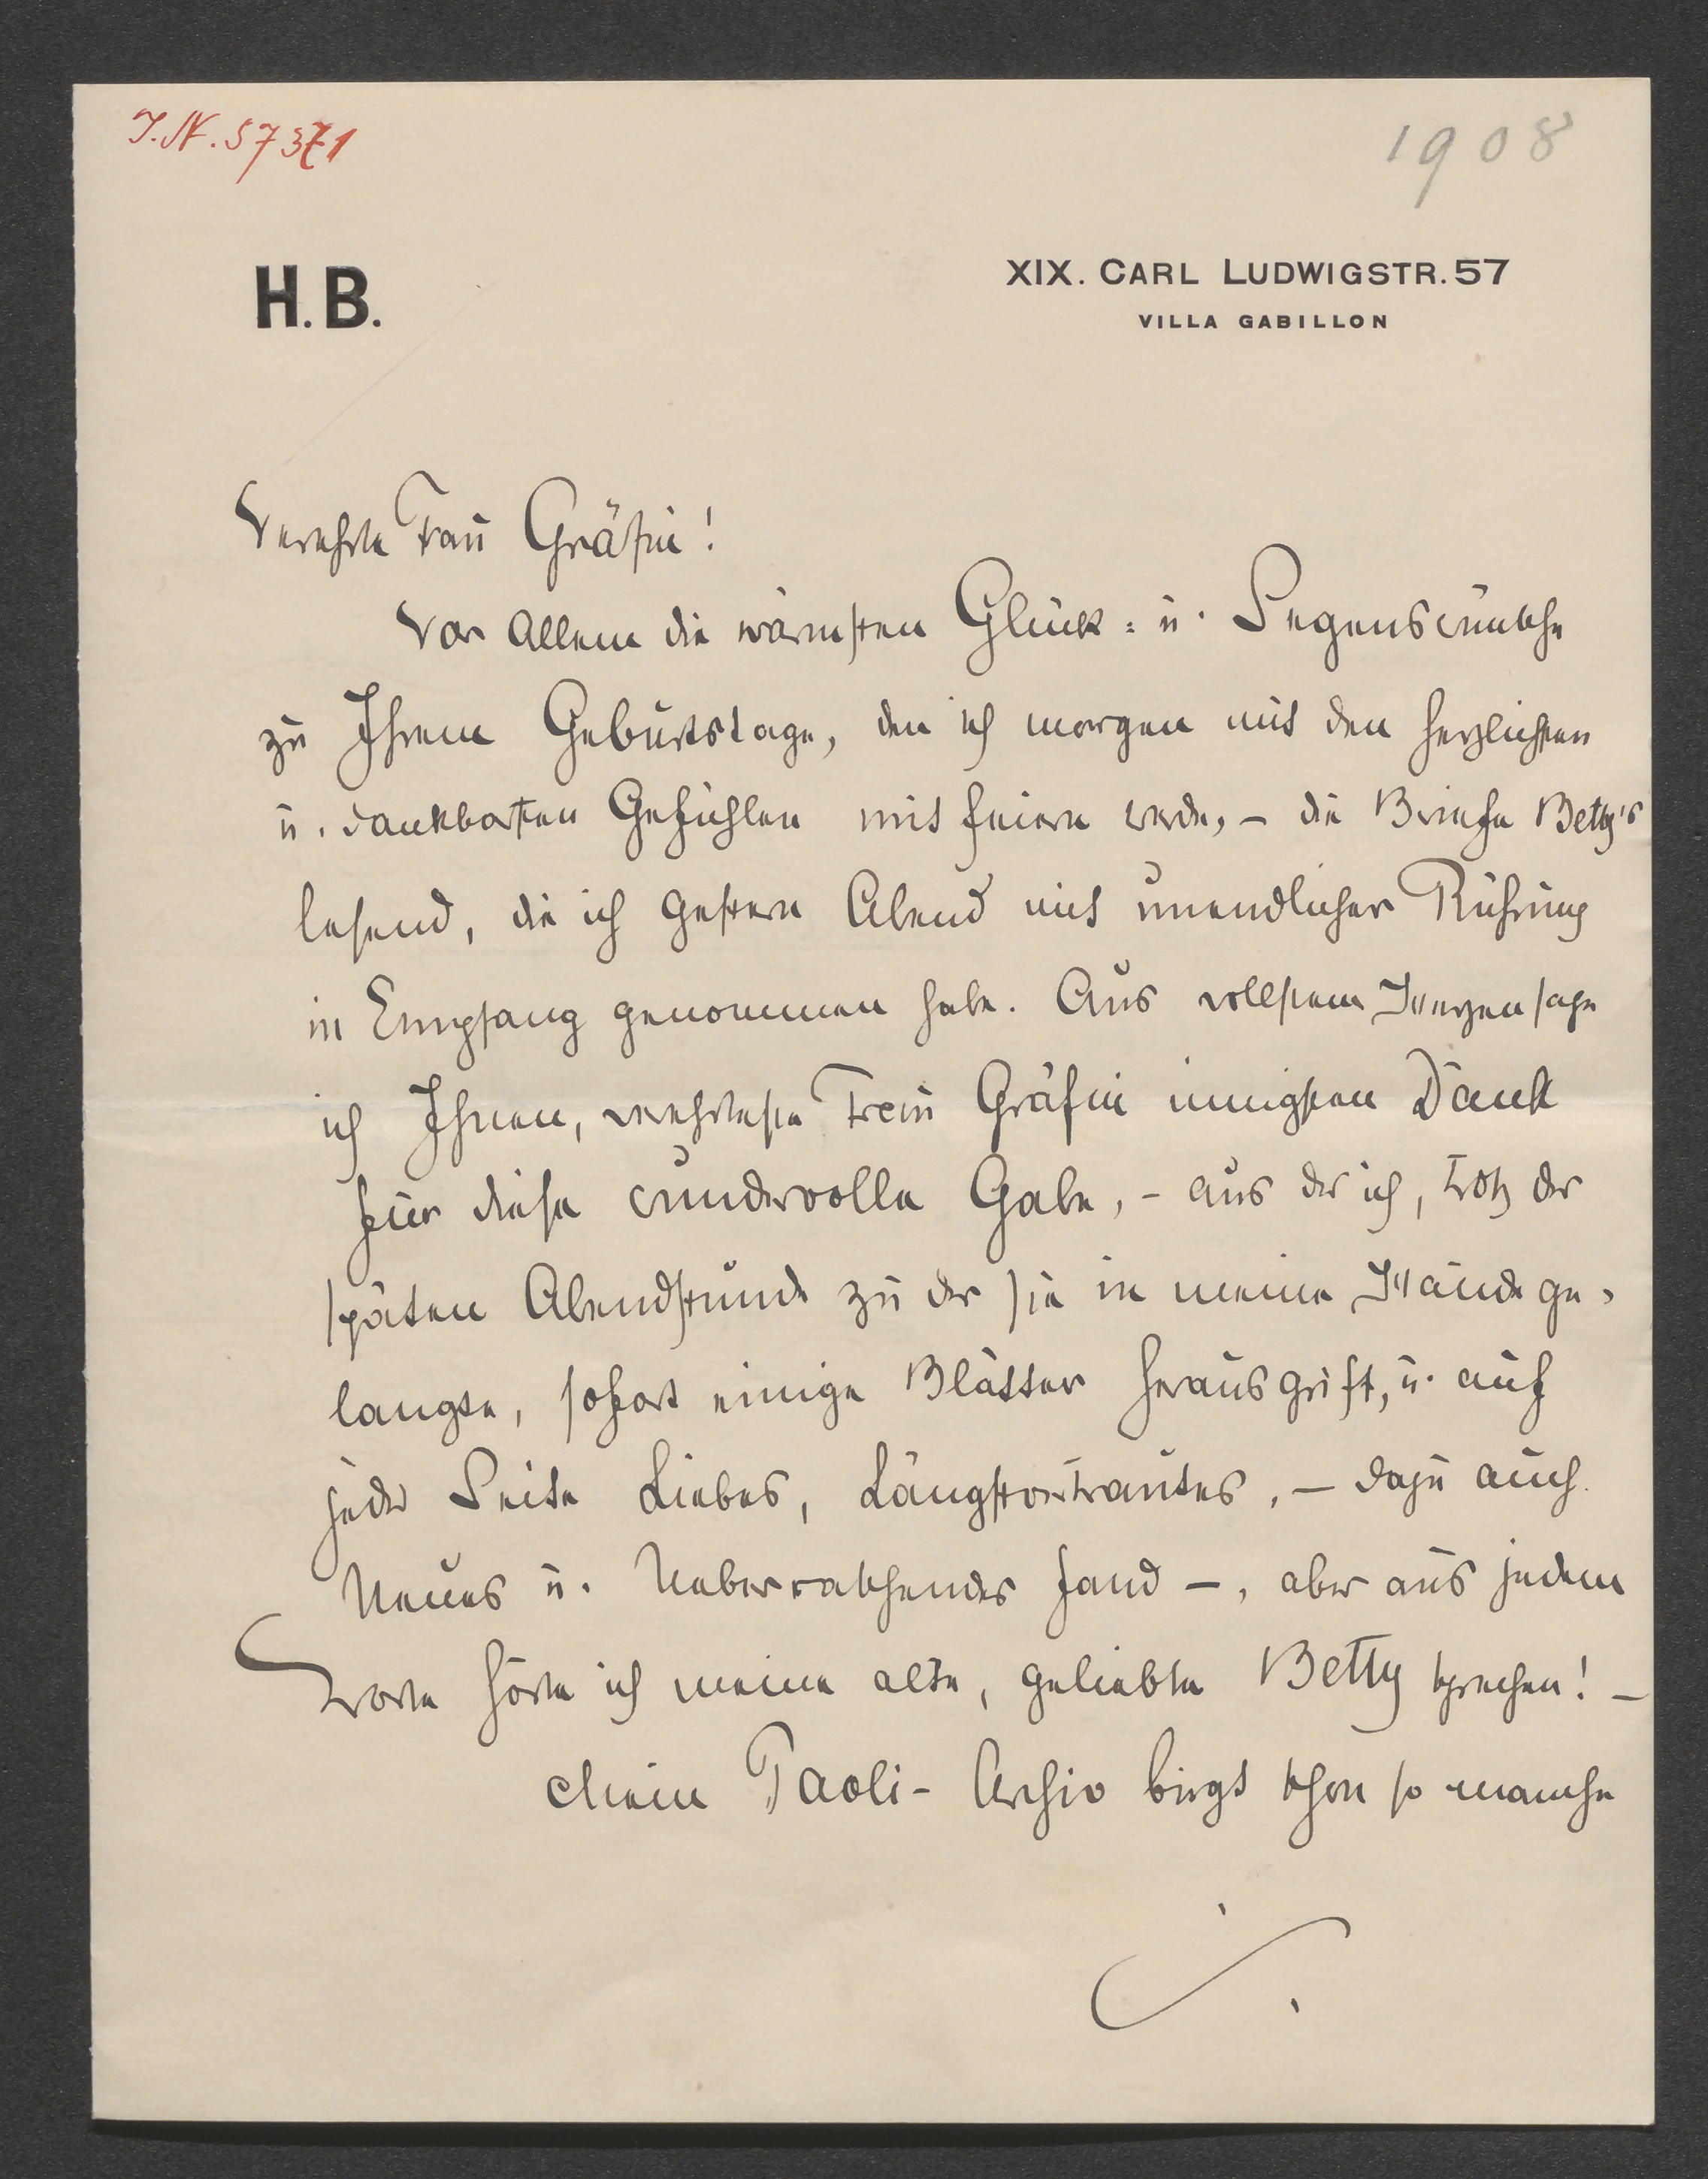 I.N. 57371
1908
H.B.
XIX. CARL LUDWIGSTR. 57
VILLA GABILLON
Verehrte Frau Gräfin!
Vor Allem die wärmsten Glück= u. Segenswünsche
zu Ihrem Geburtstage, den ich morgen mit den herzlichsten
u. dankbarsten Gefühlen mit feiern werde, – die Briefe Betty's
lesend, die ich gestern Abend mit unendlicher Rührung
in Empfang genommen habe. Aus vollstem Herzen sage
ich Ihnen, verehrteste Frau Gräfin innigsten Dank
für diese wundervolle Gabe, – aus der ich, trotz der
späten Abendstunde zu der sie in meine Hände ge-
langte, sofort einige Blätter herausgriff, u. auf
jeder Seite Liebes, Längstvertrautes, – dazu auch
Neues u. Ueberraschendes fand –, aber aus jedem
Worte hörte ich meine alte, geliebte Betty sprechen! –
Mein Paoli- Archiv birgt schon so manche